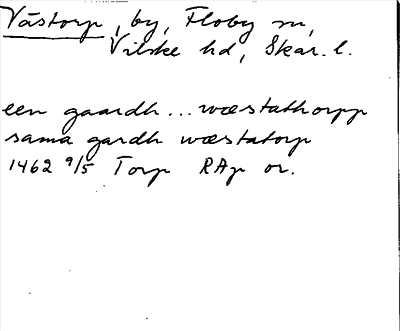 Västorp, by, Floby sn,
Vilske hd, Skar. l.
een gaardh... wæstathorpp
sama gardh wæstatorp
1462 9/5 Torp RAp or.